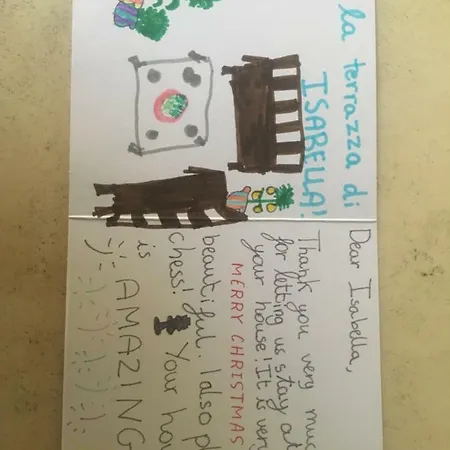 la terrazza di
ISABELLA!
Dear Isabella,
Thank you very muc
for letting us stay at
your house! It is very
MERRY CHRISTMAS
beautiful. I also pl
chess! Your hou
is AMAZING